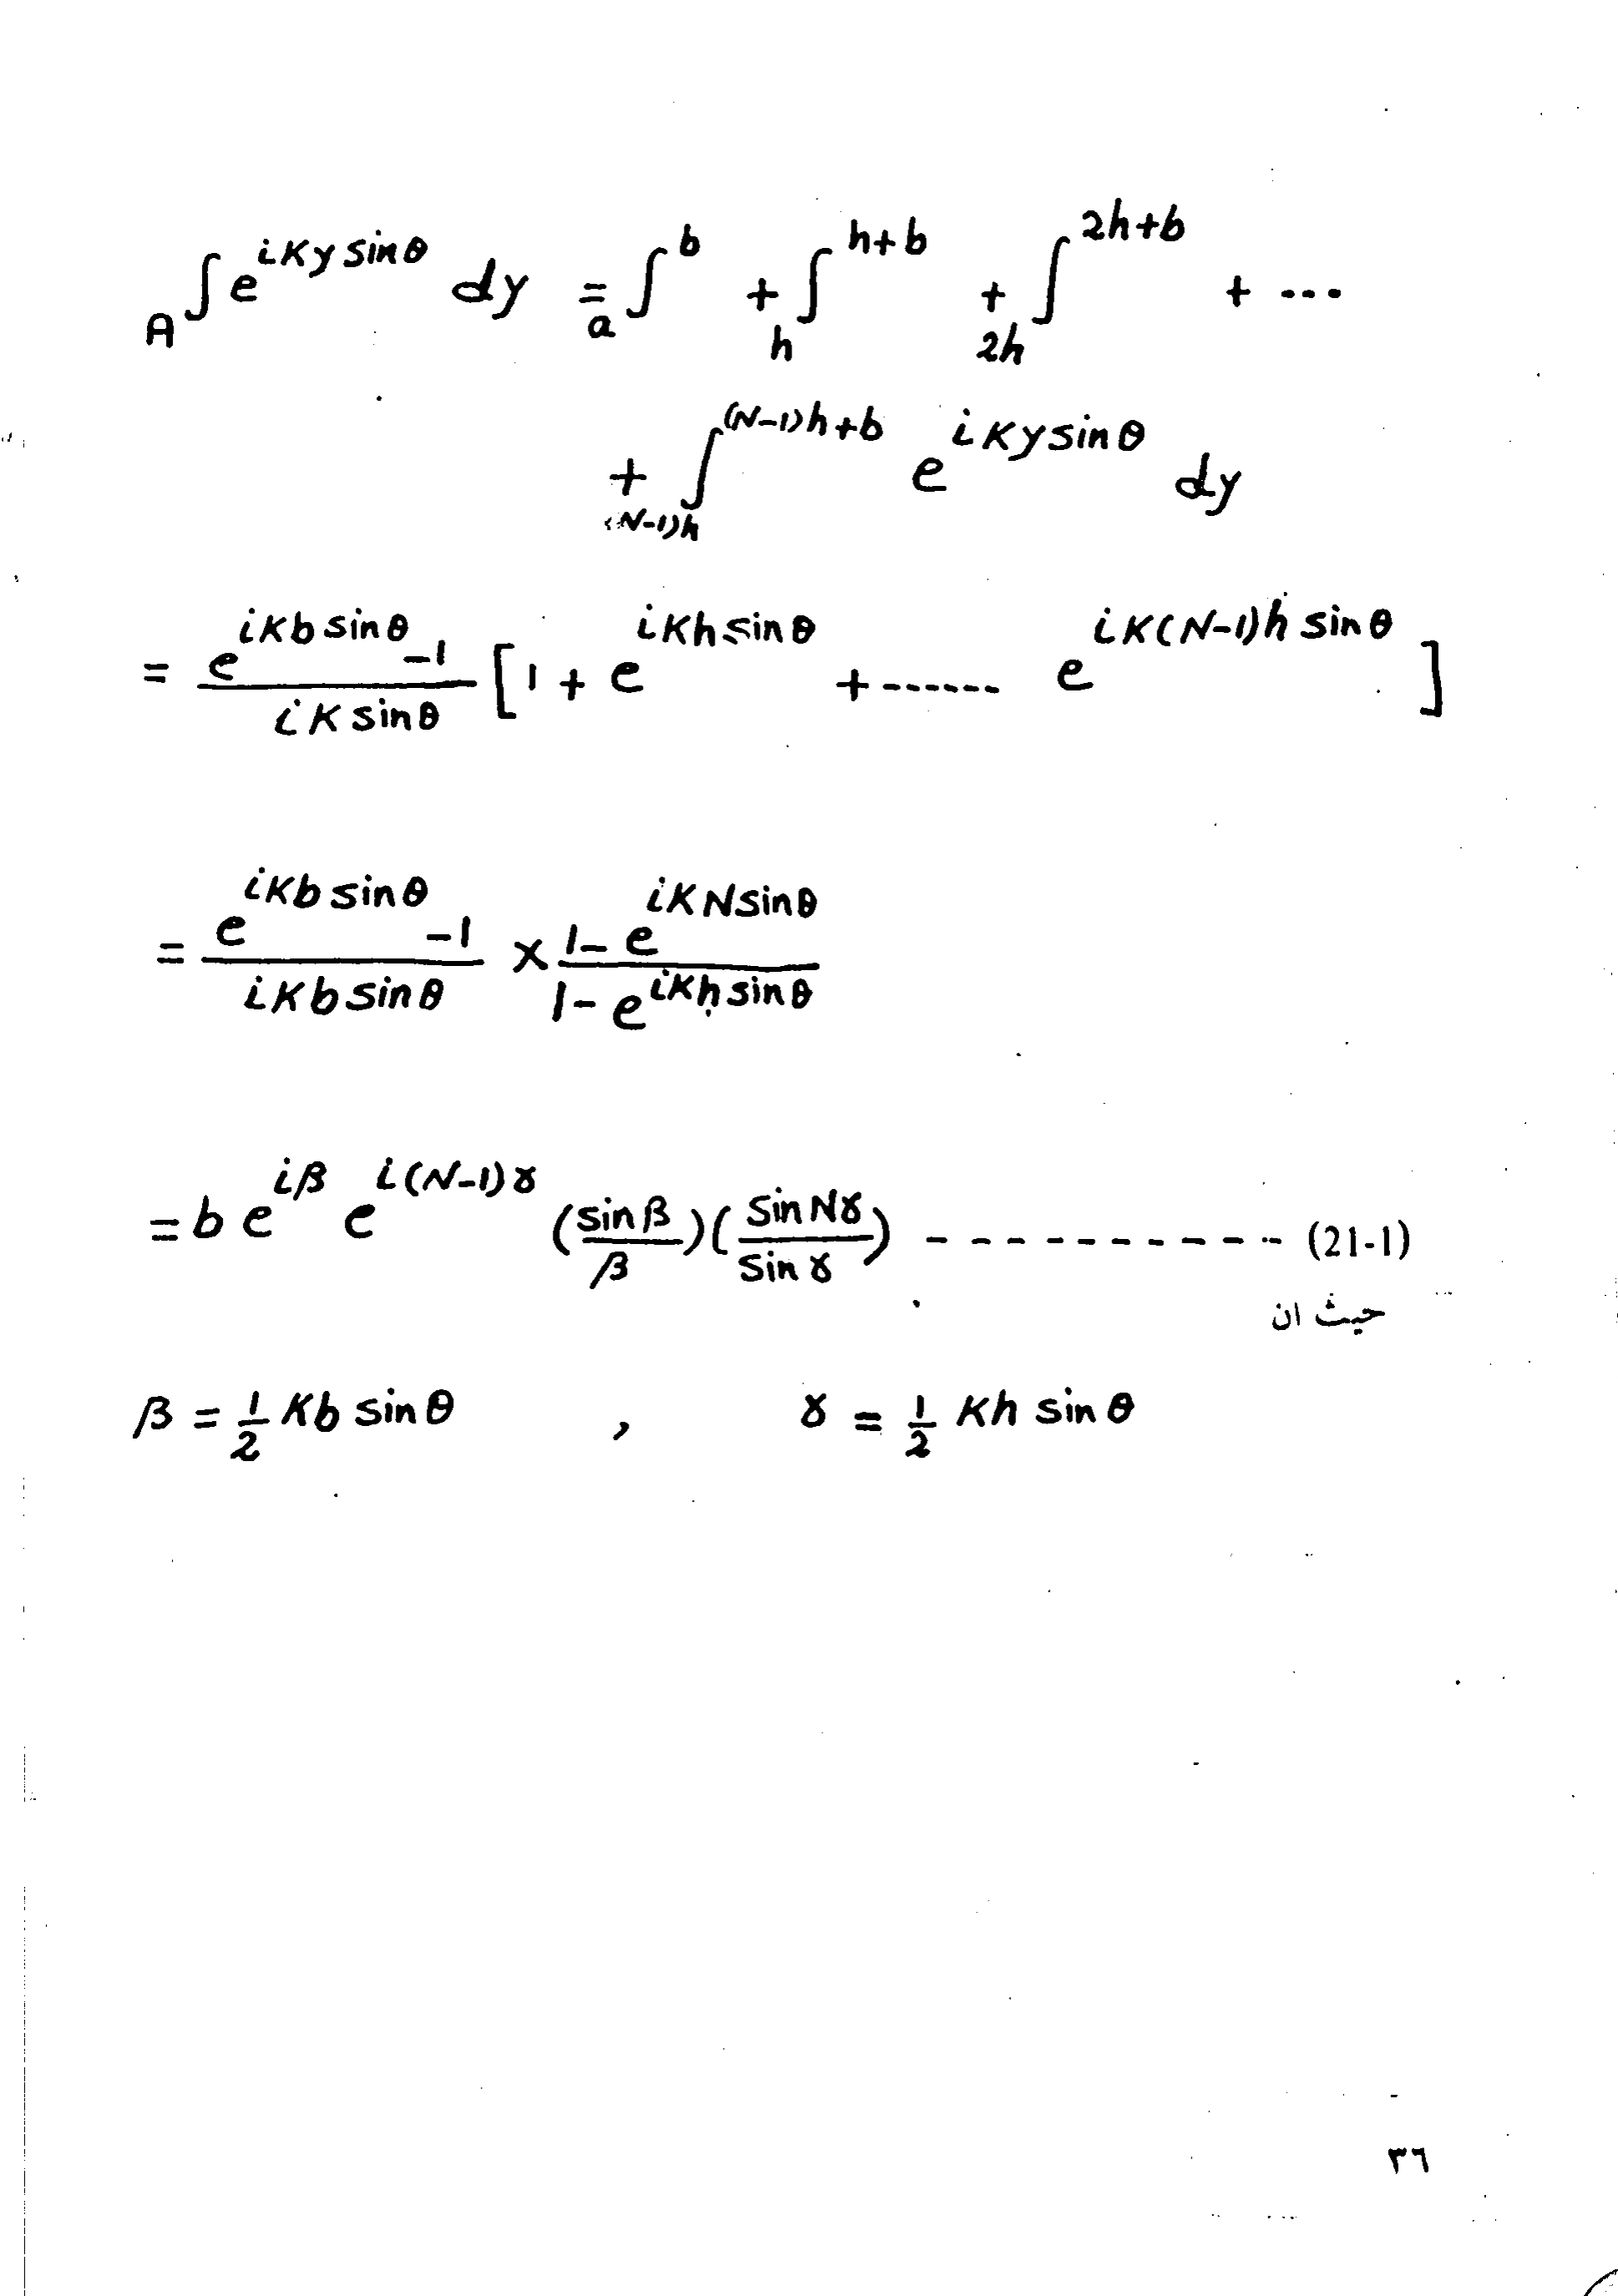 A∫e^{iKy sinθ} dy = a∫^b + h∫^{h+b} + 2h∫^{2h+b} + ...
+ (N-1)h∫^{(N-1)h+b} e^{iKy sinθ} dy
= \frac{e^{iKb sinθ} -1}{iK sinθ} [1 + e^{iKh sinθ} + ...... e^{iK(N-1)h sinθ}]
= \frac{e^{iKb sinθ} -1}{iKb sinθ} × \frac{1- e^{iKN sinθ}}{1- e^{iKh sinθ}}
= b e^{iβ} e^{i(N-1)γ} (\frac{sinβ}{β})(\frac{sin Nγ}{sin γ}) - - - - - - - - - - - (21-1)
حيث ان
β = \frac{1}{2} Kb sinθ , γ = \frac{1}{2} Kh sinθ
٣٦